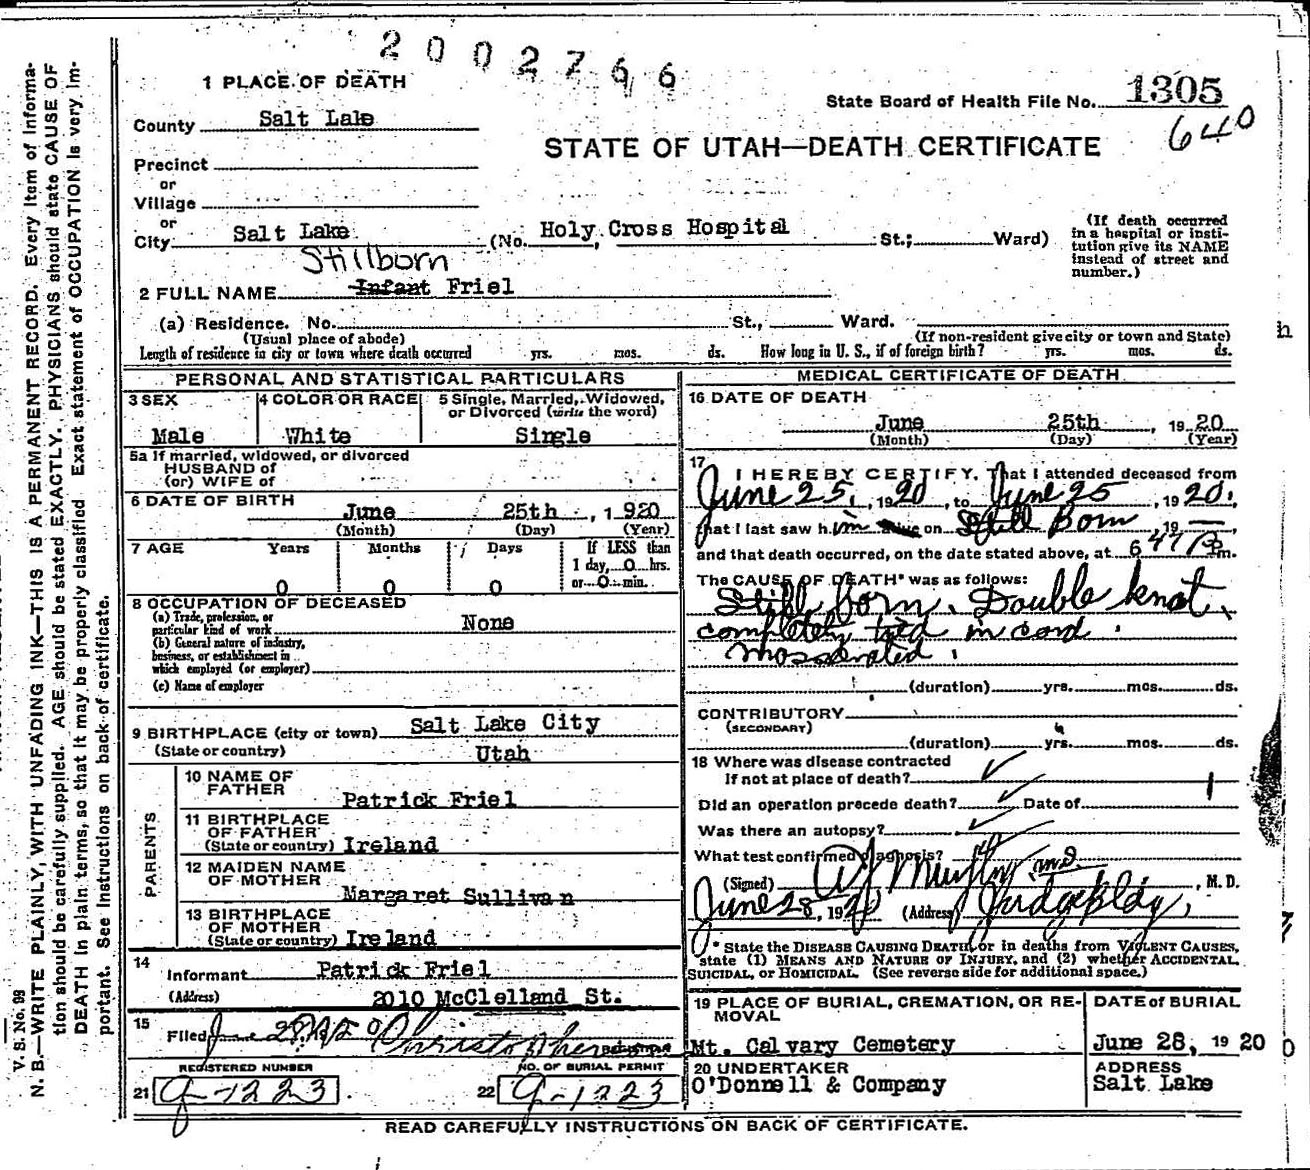 2002766
1 PLACE OF DEATH
State Board of Health File No. 1305
640
County Salt Lake
STATE OF UTAH—DEATH CERTIFICATE
Precinct
or
Village
or
City Salt Lake (No. Holy Cross Hospital St.; Ward)
(If death occurred
in a hospital or insti-
tution give its NAME
instead of street and
number.)
Stillborn
2 FULL NAME Infant Friel
(a) Residence. No. St., Ward.
(Usual place of abode) (If non-resident give city or town and State)
Length of residence in city or town where death occurred yrs. mos. ds. How long in U. S., if of foreign birth? yrs. mos. ds.
PERSONAL AND STATISTICAL PARTICULARS
3 SEX
Male
4 COLOR OR RACE
White
5 Single, Married, Widowed,
or Divorced (write the word)
Single
5a If married, widowed, or divorced
HUSBAND of
(or) WIFE of
6 DATE OF BIRTH
June 25th, 1920
(Month) (Day) (Year)
7 AGE Years Months Days If LESS than
1 day, 0 hrs.
0 0 0 or 0 min.
8 OCCUPATION OF DECEASED
(a) Trade, profession, or
particular kind of work None
(b) General nature of industry,
business, or establishment in
which employed (or employer)
(c) Name of employer
9 BIRTHPLACE (city or town) Salt Lake City
(State or country) Utah
PARENTS
10 NAME OF
FATHER Patrick Friel
11 BIRTHPLACE
OF FATHER
(State or country) Ireland
12 MAIDEN NAME
OF MOTHER
Margaret Sullivan
13 BIRTHPLACE
OF MOTHER
(State or country) Ireland
14
Informant Patrick Friel
(Address) 2010 McClelland St.
15
Filed June 28, 1920 Christopherson
REGISTERED NUMBER NO. OF BURIAL PERMIT
21 G-1223 22 G-1223
MEDICAL CERTIFICATE OF DEATH
16 DATE OF DEATH
June 25th, 1920
(Month) (Day) (Year)
17
I HEREBY CERTIFY, That I attended deceased from
June 25, 1920, to June 25, 1920,
that I last saw him alive on Still Born, 19—,
and that death occurred, on the date stated above, at 6 47 P m.
The CAUSE OF DEATH* was as follows:
Still born. Double knot,
completely tied in cord.
Masserated.
(duration) yrs. mos. ds.
CONTRIBUTORY
(SECONDARY)
(duration) yrs. mos. ds.
18 Where was disease contracted
If not at place of death?
Did an operation precede death? Date of
Was there an autopsy?
What test confirmed diagnosis?
(Signed) M.D., M. D.
June 28, 1920 (Address) Judge Bldg,
* State the DISEASE CAUSING DEATH, or in deaths from VIOLENT CAUSES,
state (1) MEANS AND NATURE OF INJURY, and (2) whether ACCIDENTAL,
SUICIDAL, or HOMICIDAL. (See reverse side for additional space.)
19 PLACE OF BURIAL, CREMATION, OR RE-
MOVAL
Mt. Calvary Cemetery
DATE of BURIAL
June 28, 1920
20 UNDERTAKER
O'Donnell & Company
ADDRESS
Salt Lake
READ CAREFULLY INSTRUCTIONS ON BACK OF CERTIFICATE.
V. S. No. 99
N. B.—WRITE PLAINLY, WITH UNFADING INK—THIS IS A PERMANENT RECORD. Every item of informa-
tion should be carefully supplied. AGE should be stated EXACTLY. PHYSICIANS should state CAUSE OF
DEATH in plain terms, so that it may be properly classified Exact statement of OCCUPATION is very im-
portant. See Instructions on back of certificate.